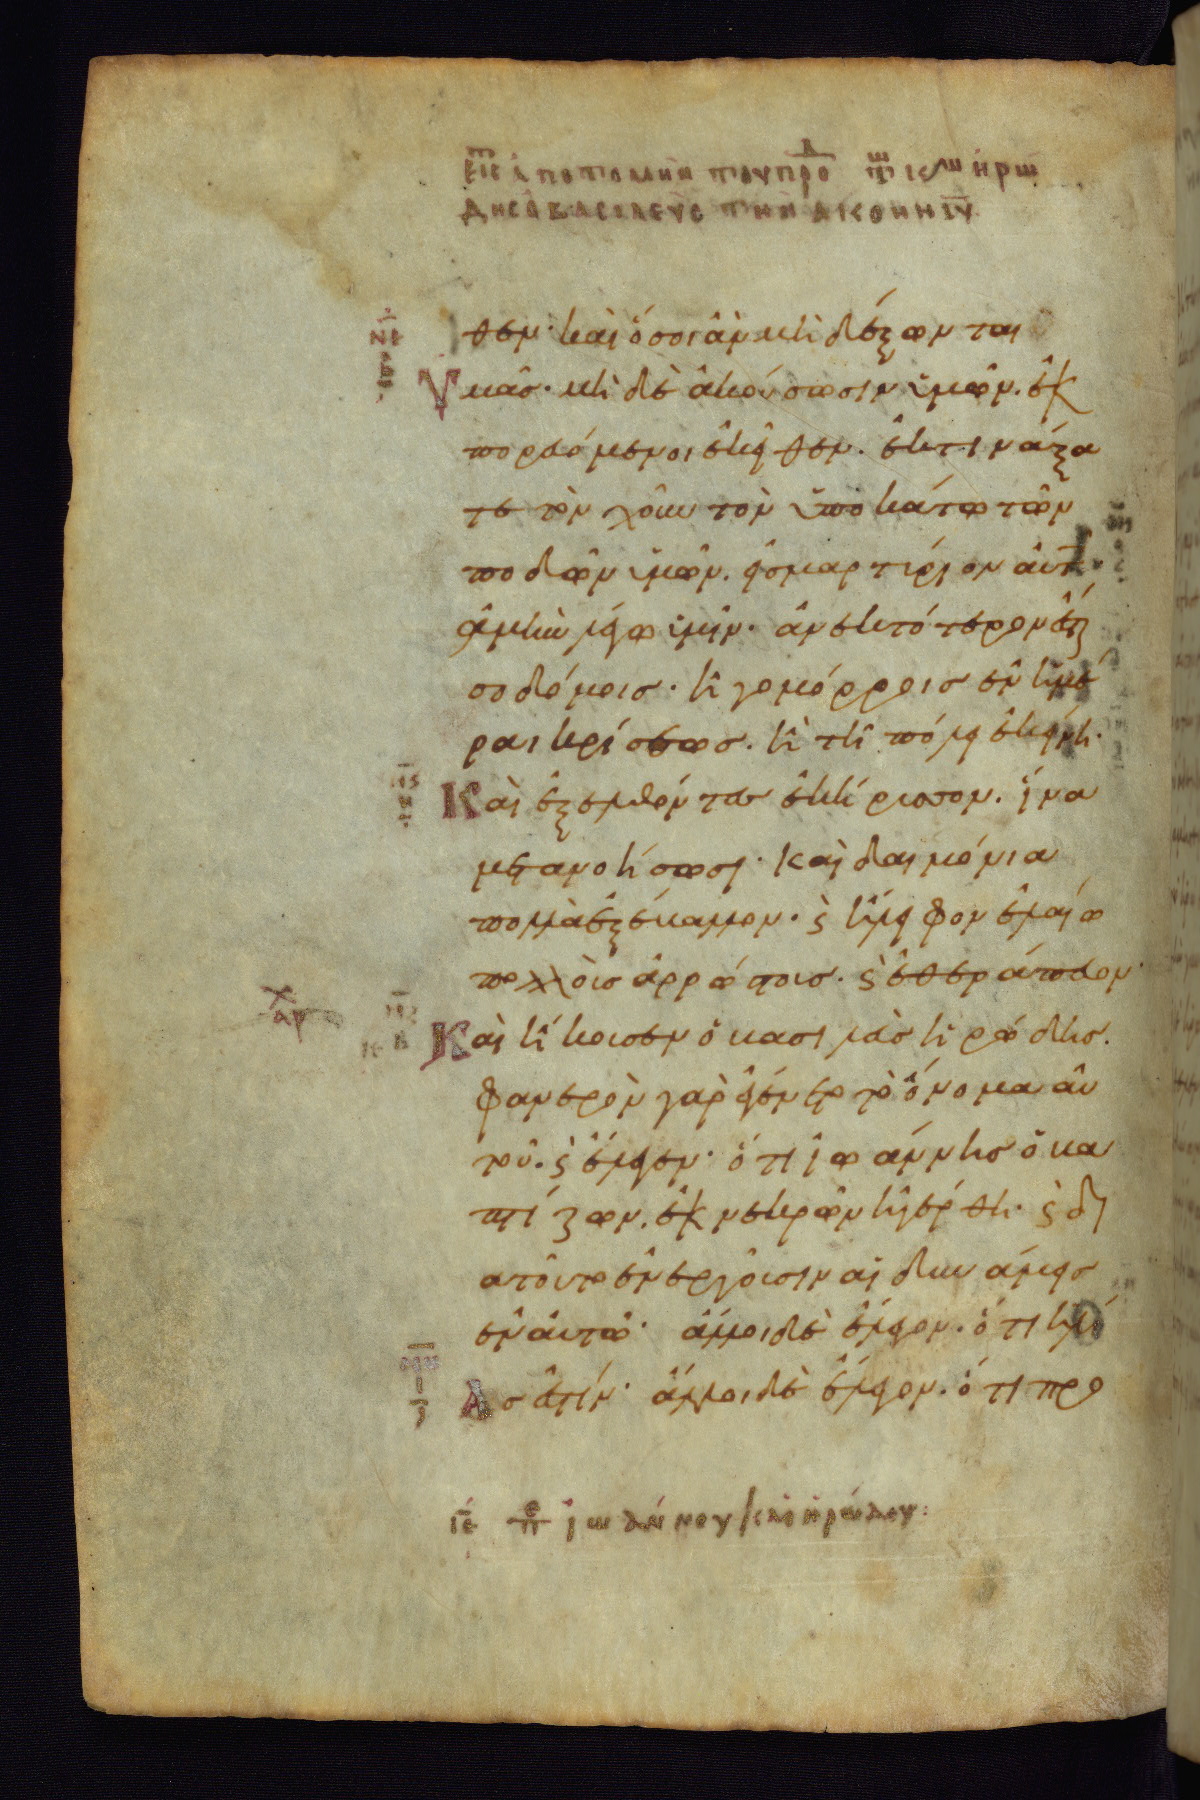 εἰς ἀποτομὴν τοῦ προδ τω κω ἤκουσεν ἡρώ
δης ὁ βασιλεὺς τὴν ἀκοὴν ιυ
θεν· καὶ ὅσοι ἂν μὴ δέξωνται
ὑμᾶσ· μὴ δὲ ἀκούσωσιν ὑμῶν. ἐκ
πορευόμενοι ἐκεῖθεν. ἐκτινάξα
τε τὸν χοῦν τὸν ὑποκάτω τῶν
ποδῶν ὑμῶν. εἰσ μαρτύριον αὐτ·
ἀμὴν λέγω ὑμῖν· ἀνεκτότερον ἔσται
σοδόμοισ· ἢ γομόρροισ ἐν ἡμέ
ραι κρίσεωσ. ἢ τῆ πόλει ἐκείνη·
Καὶ ἐξελθόντεσ ἐκήρυσσον. ἵνα
μετανοήσωσι· καὶ δαιμόνια
πολλὰ ἐξέβαλλον· ϗ ἤλειφον ἐλαίω
πολλοὺσ ἀρρώστουσ· ϗ ἐθεράπευον·
Καὶ ἤκουσεν ὁ βασιλεὺσ ἡρώδησ.
φανερὸν γὰρ ἐγένετο τὸ ὄνομα αὐ
τοῦ. ϗ ἔλεγεν· ὅτι ἰωάννησ ὁ βα
πτίζων. ἐκ νεκρῶν ἠγέρθη· ϗ δι
ατοῦτο ἐνεργοῦσιν αἱ δυνάμεισ
ἐν αὐτῶ· ἄλλοι δὲ ἔλεγον. ὅτι ἡλί
Ασ ἐστίν· ἄλλοι δὲ ἔλεγον. ὅτι προ
ιε περ ἰωάννου καὶ ἡρώδου: